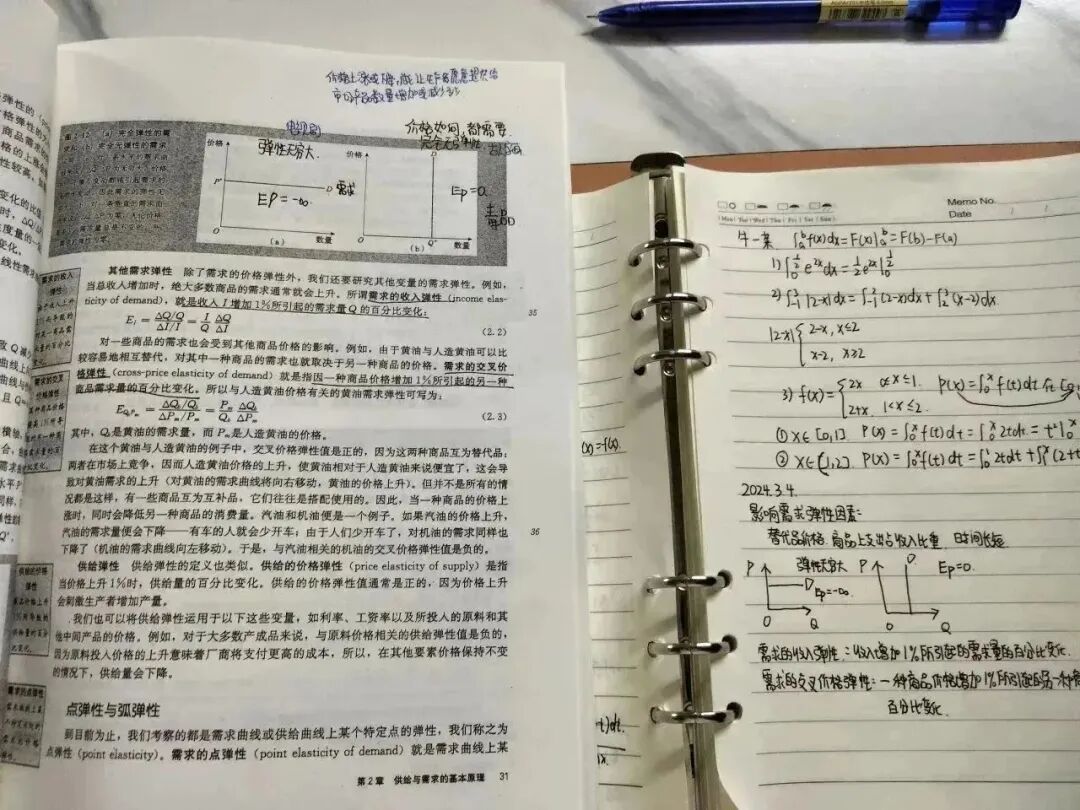 价格上涨或下降,能让生产者愿意提供给
市场产品数量增加或减少
电视剧
价格如何,都需要
完全无弹性
图2.12 (a)完全弹性的需
价格
弹性无穷大
P*
D 需求
EP=-∞
数量
(a)
价格
D
Ep=0
Q*
数量
(b)
其他需求弹性 除了需求的价格弹性外,我们还要研究其他变量的需求弹性。例如,
当总收入增加时,绝大多数商品的需求通常就会上升。所谓需求的收入弹性(income elas-
ticity of demand),就是收入 I 增加1%所引起的需求量 Q 的百分比变化:
35
E_I = (ΔQ/Q)/(ΔI/I) = (I/Q)(ΔQ/ΔI)
(2.2)
对一些商品的需求也会受到其他商品价格的影响。例如,由于黄油与人造黄油可以比
较容易地相互替代,对其中一种商品的需求也就取决于另一种商品的价格。需求的交叉价
格弹性(cross-price elasticity of demand)就是指因一种商品价格增加1%所引起的另一种
商品需求量的百分比变化。所以与人造黄油价格有关的黄油需求弹性可写为:
E_{Q_b P_m} = (ΔQ_b/Q_b)/(ΔP_m/P_m) = (P_m/Q_b)(ΔQ_b/ΔP_m)
(2.3)
其中,Q_b是黄油的需求量,而 P_m是人造黄油的价格。
在这个黄油与人造黄油的例子中,交叉价格弹性值是正的,因为这两种商品互为替代品:
两者在市场上竞争,因而人造黄油价格的上升,使黄油相对于人造黄油来说便宜了,这会导
致对黄油需求的上升(对黄油的需求曲线将向右移动,黄油的价格上升)。但并不是所有的情
况都是这样,有一些商品互为互补品,它们往往是搭配使用的。因此,当一种商品的价格上
涨时,同时会降低另一种商品的消费量。汽油和机油便是一个例子。如果汽油的价格上升,
汽油的需求量便会下降——有车的人就会少开车;由于人们少开车了,对机油的需求同样也
36
下降了(机油的需求曲线向左移动)。于是,与汽油相关的机油的交叉价格弹性值是负的。
供给弹性 供给弹性的定义也类似。供给的价格弹性(price elasticity of supply)是指
当价格上升1%时,供给量的百分比变化。供给的价格弹性值通常是正的,因为价格上升
会刺激生产者增加产量。
我们也可以将供给弹性运用于以下这些变量,如利率、工资率以及所投入的原料和其
他中间产品的价格。例如,对于大多数产成品来说,与原料价格相关的供给弹性值是负的,
因为原料投入价格的上升意味着厂商将支付更高的成本,所以,在其他要素价格保持不变
的情况下,供给量会下降。
点弹性与弧弹性
到目前为止,我们考察的都是需求曲线或供给曲线上某个特定点的弹性,我们称之为
点弹性(point elasticity)。需求的点弹性(point elasticity of demand)就是需求曲线上某
第2章 供给与需求的基本原理 31
需求的收入
弹性
需求的交叉
价格弹性
供给的价格
弹性
需求的点弹性
Memo No.
Mon Tue Wed Thu Fri Sat Sun
Date
牛—莱 ∫_a^b f(x)dx=F(x)|_a^b=F(b)-F(a)
1) ∫_0^{1/2} e^{2x}dx=1/2 e^{2x}|_0^{1/2}
2) ∫_{-1}^3 |2-x|dx=∫_{-1}^2 (2-x)dx+∫_2^3 (x-2)dx
|2-x| { 2-x, x≤2
x-2, x≥2
3) f(x)={ 2x 0≤x≤1. P(x)=∫_0^x f(t)dt 在[0,
2+x. 1<x≤2.
① x∈[0,1]. P(x)=∫_0^x f(t)dt=∫_0^x 2tdt=t²|_0^x
② x∈(1,2] P(x)=∫_0^x f(t)dt=∫_0^1 2tdt+∫_1^x (2+t
2024.3.4.
影响需求弹性因素:
替代品价格. 商品上支出占收入比重. 时间长短
P
弹性无穷大
D
Ep=-∞
O Q
P
D
Ep=0.
O Q
需求的收入弹性:收入增加1%所引起的需求量的百分比变化.
需求的交叉价格弹性:一种商品价格增加1%所引起的另一种
百分比变化.
=f(x).
t)dt.